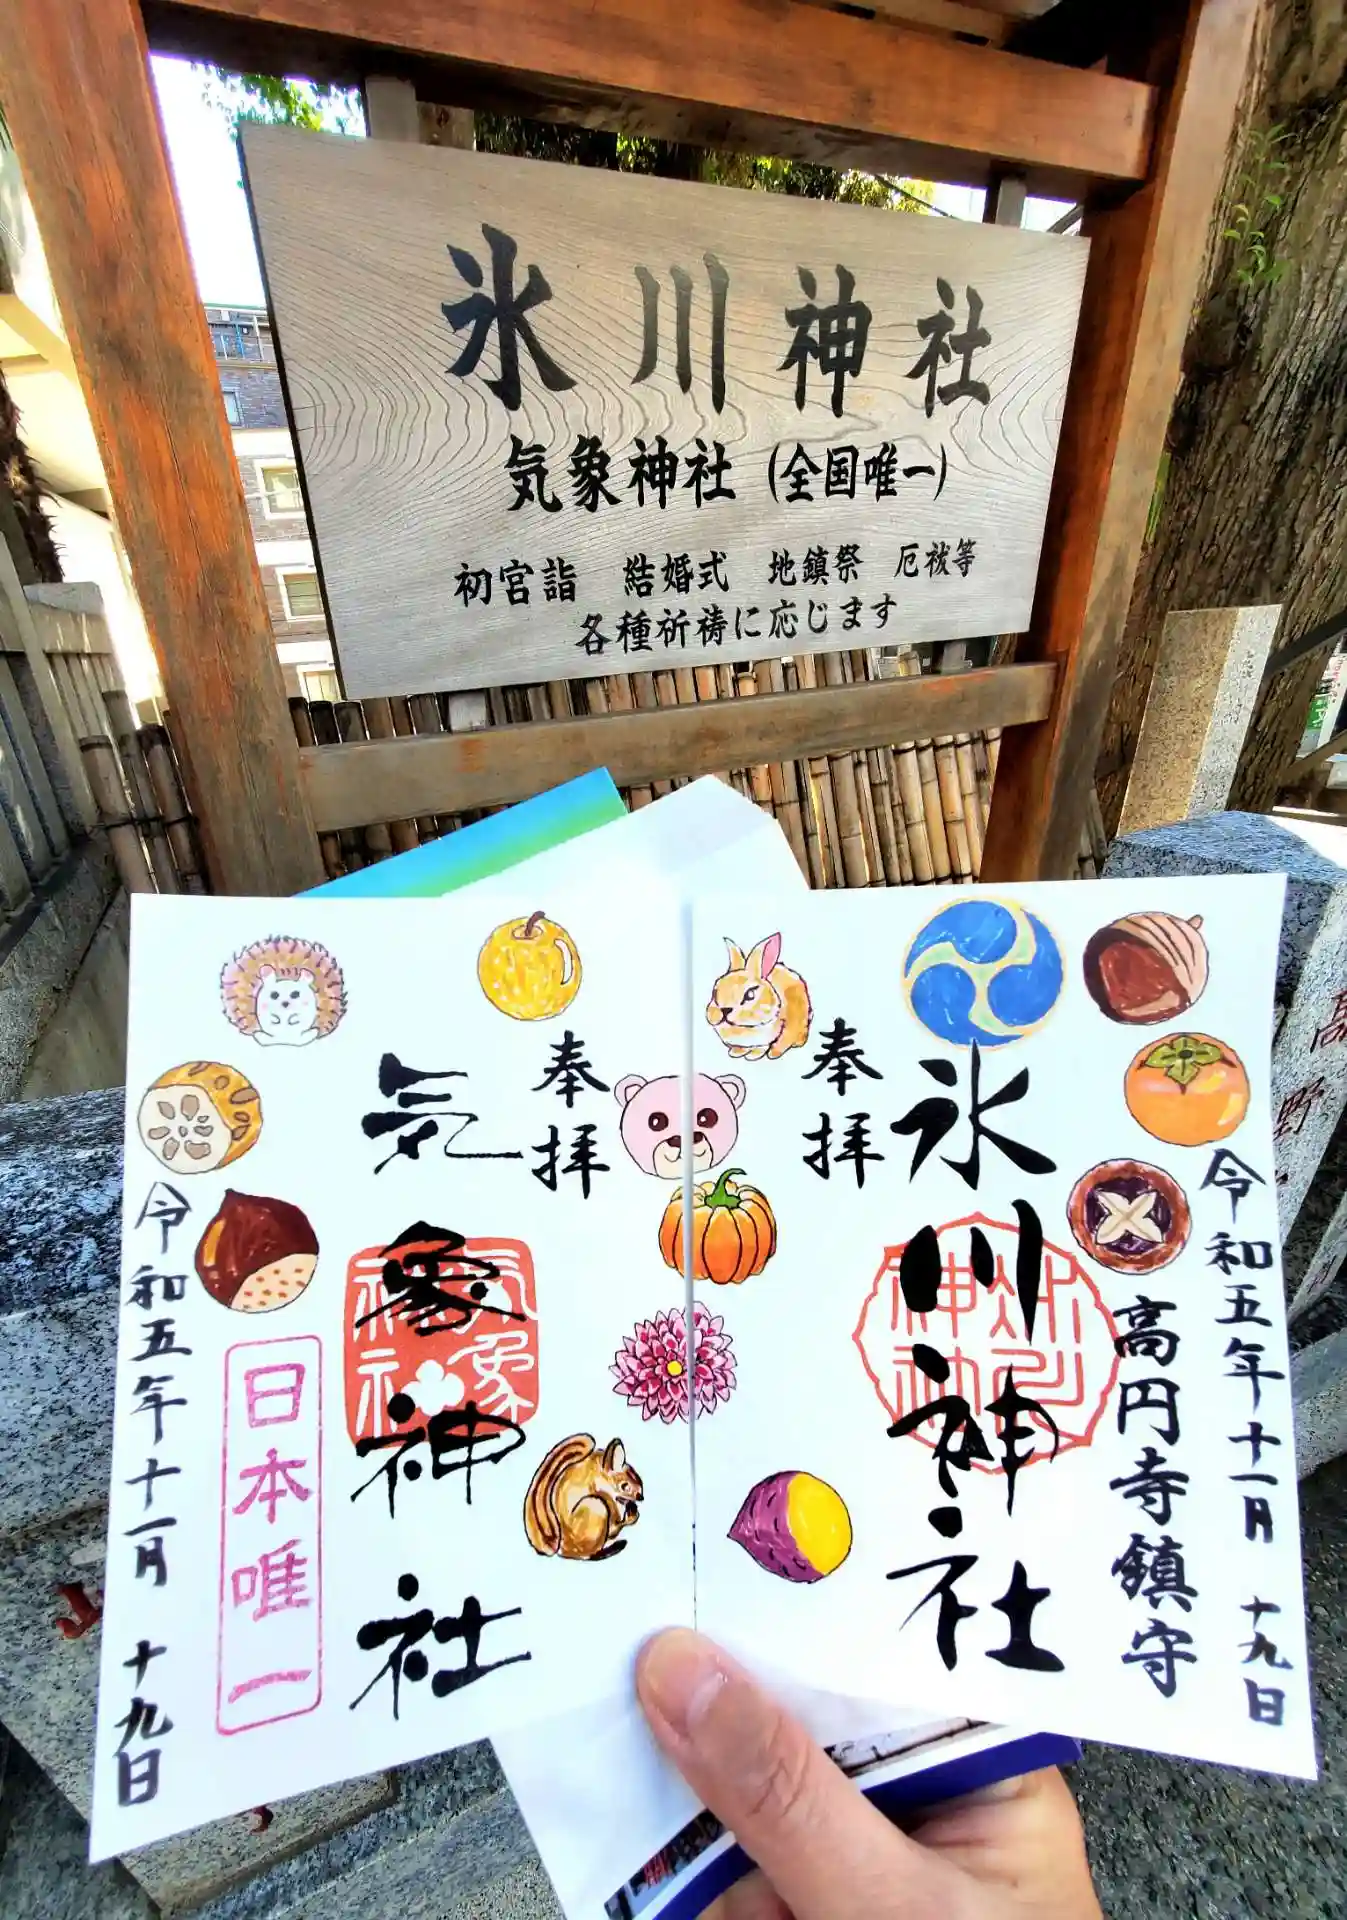 氷川神社
気象神社（全国唯一）
初宮詣　結婚式　地鎮祭　厄祓等
各種祈祷に応じます
令和五年十一月　十九日
高円寺鎮守
氷川神社
奉拝
奉拝
気象神社
日本唯一
令和五年十一月　十九日